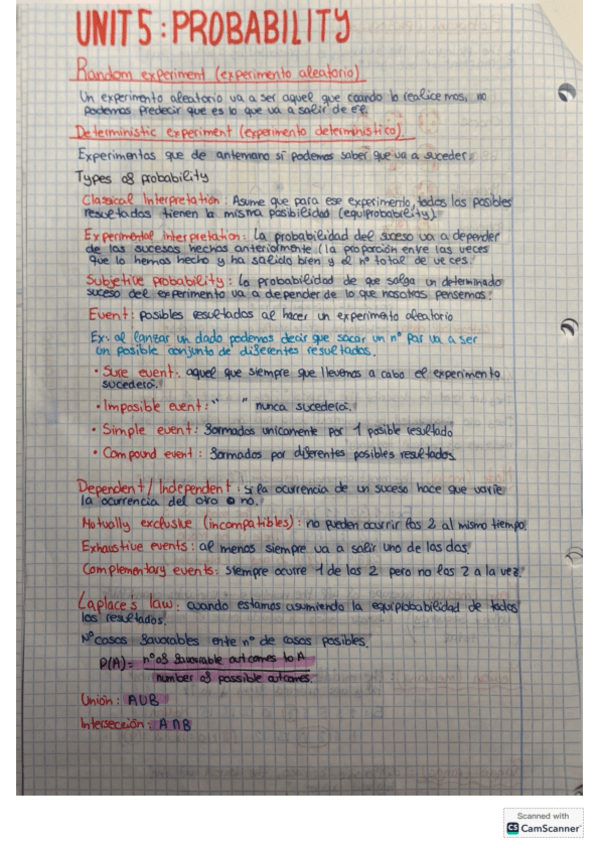 UNIT 5: PROBABILITY
Random experiment (experimento aleatorio)
Un experimento aleatorio va a ser aquel que cuando lo realicemos, no
podemos predecir que es lo que va a salir de él.
Deterministic experiment (experimento determinístico)
Experimentos que de antemano si podemos saber que va a suceder.
Types of probability
Classical Interpretation: Asume que para ese experimento, todos los posibles
resultados tienen la misma posibilidad (equiprobability).
Experimental interpretation: la probabilidad del suceso va a depender
de los sucesos hechos anteriormente (la proporción entre las veces
que lo hemos hecho y ha salido bien y el nº total de veces.
Subjetive probability: la probabilidad de que salga un determinado
suceso del experimento va a depender de lo que nosotros pensemos.
Event: posibles resultados al hacer un experimento aleatorio
Ex: al lanzar un dado podemos decir que sacar un nº par va a ser
un posible conjunto de diferentes resultados.
• Sure event: aquel que siempre que llevemos a cabo el experimento
sucederá.
• Imposible event: " " nunca sucederá.
• Simple event: formados unicamente por 1 posible resultado
• Compound event: formados por diferentes posibles resultados
Dependent / Independent: si la ocurrencia de un suceso hace que varíe
la ocurrencia del otro o no.
Mutually exclusive (incompatibles): no pueden ocurrir los 2 al mismo tiempo.
Exhaustive events: al menos siempre va a salir uno de los dos.
Complementary events: siempre ocurre 1 de los 2 pero no los 2 a la vez.
Laplace's law: cuando estamos asumiendo la equiprobabilidad de todos
los resultados.
Nº casos favorables ente nº de casos posibles.
P(A) = nº of favourable outcomes to A
number of possible outcomes.
Unión: A∪B
Intersección: A∩B
Scanned with
CS CamScanner